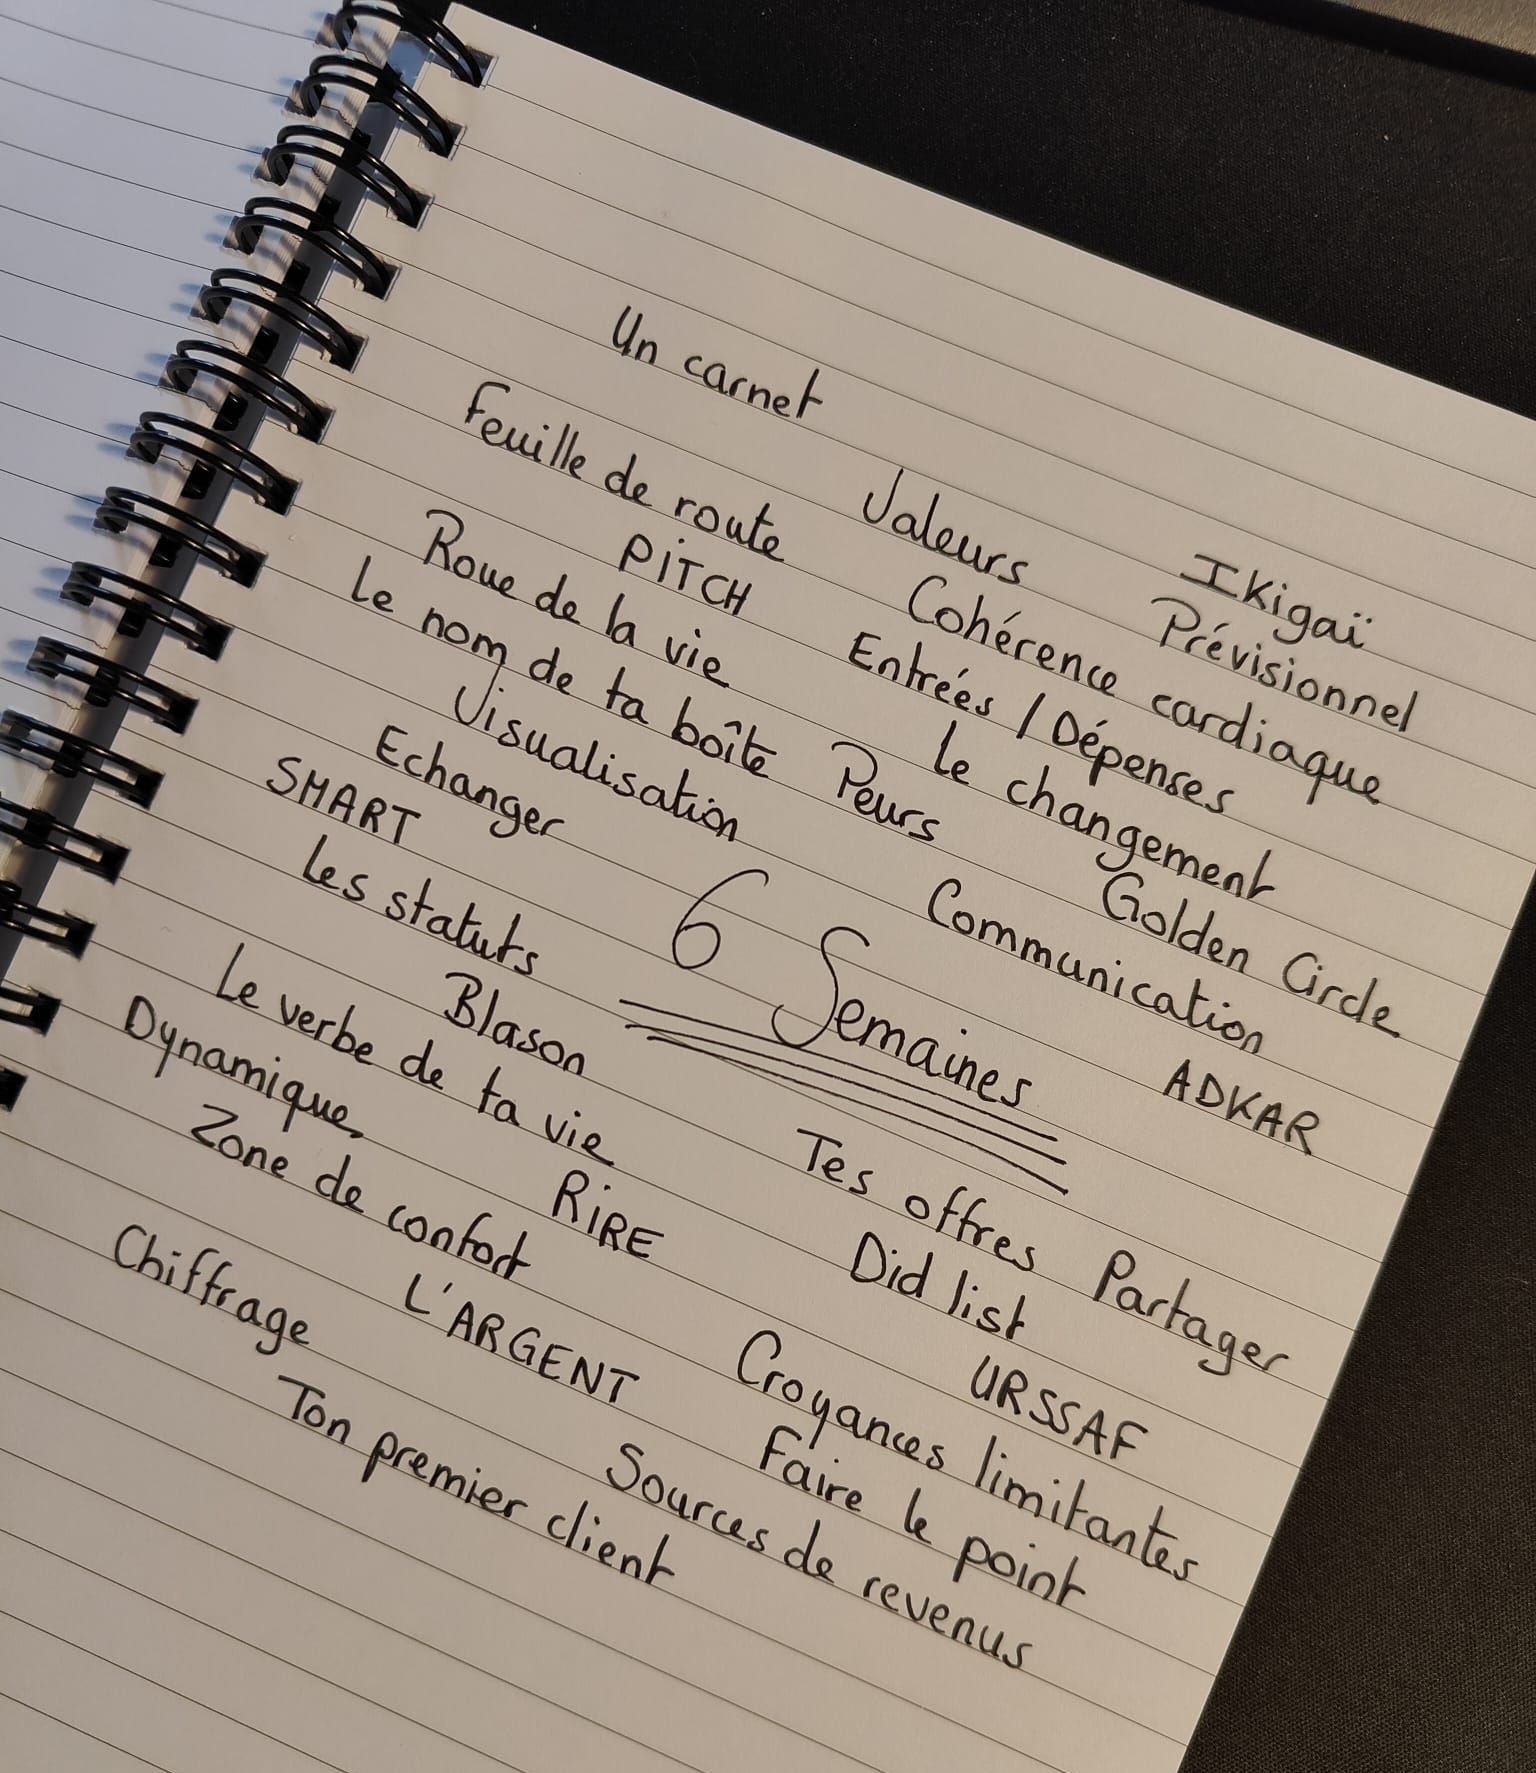 Un carnet
Valeurs
IKigaï
Feuille de route
Cohérence cardiaque
Prévisionnel
PITCH
Entrées / Dépenses
Roue de la vie
Le changement
Le nom de ta boîte
Peurs
Golden Circle
Visualisation
Communication
Echanger
SMART
6 Semaines
ADKAR
Les statuts
Blason
Tes offres
Partager
Le verbe de ta vie
Did list
Dynamique
RIRE
URSSAF
Zone de confort
Croyances limitantes
L'ARGENT
Faire le point
Chiffrage
Sources de revenus
Ton premier client